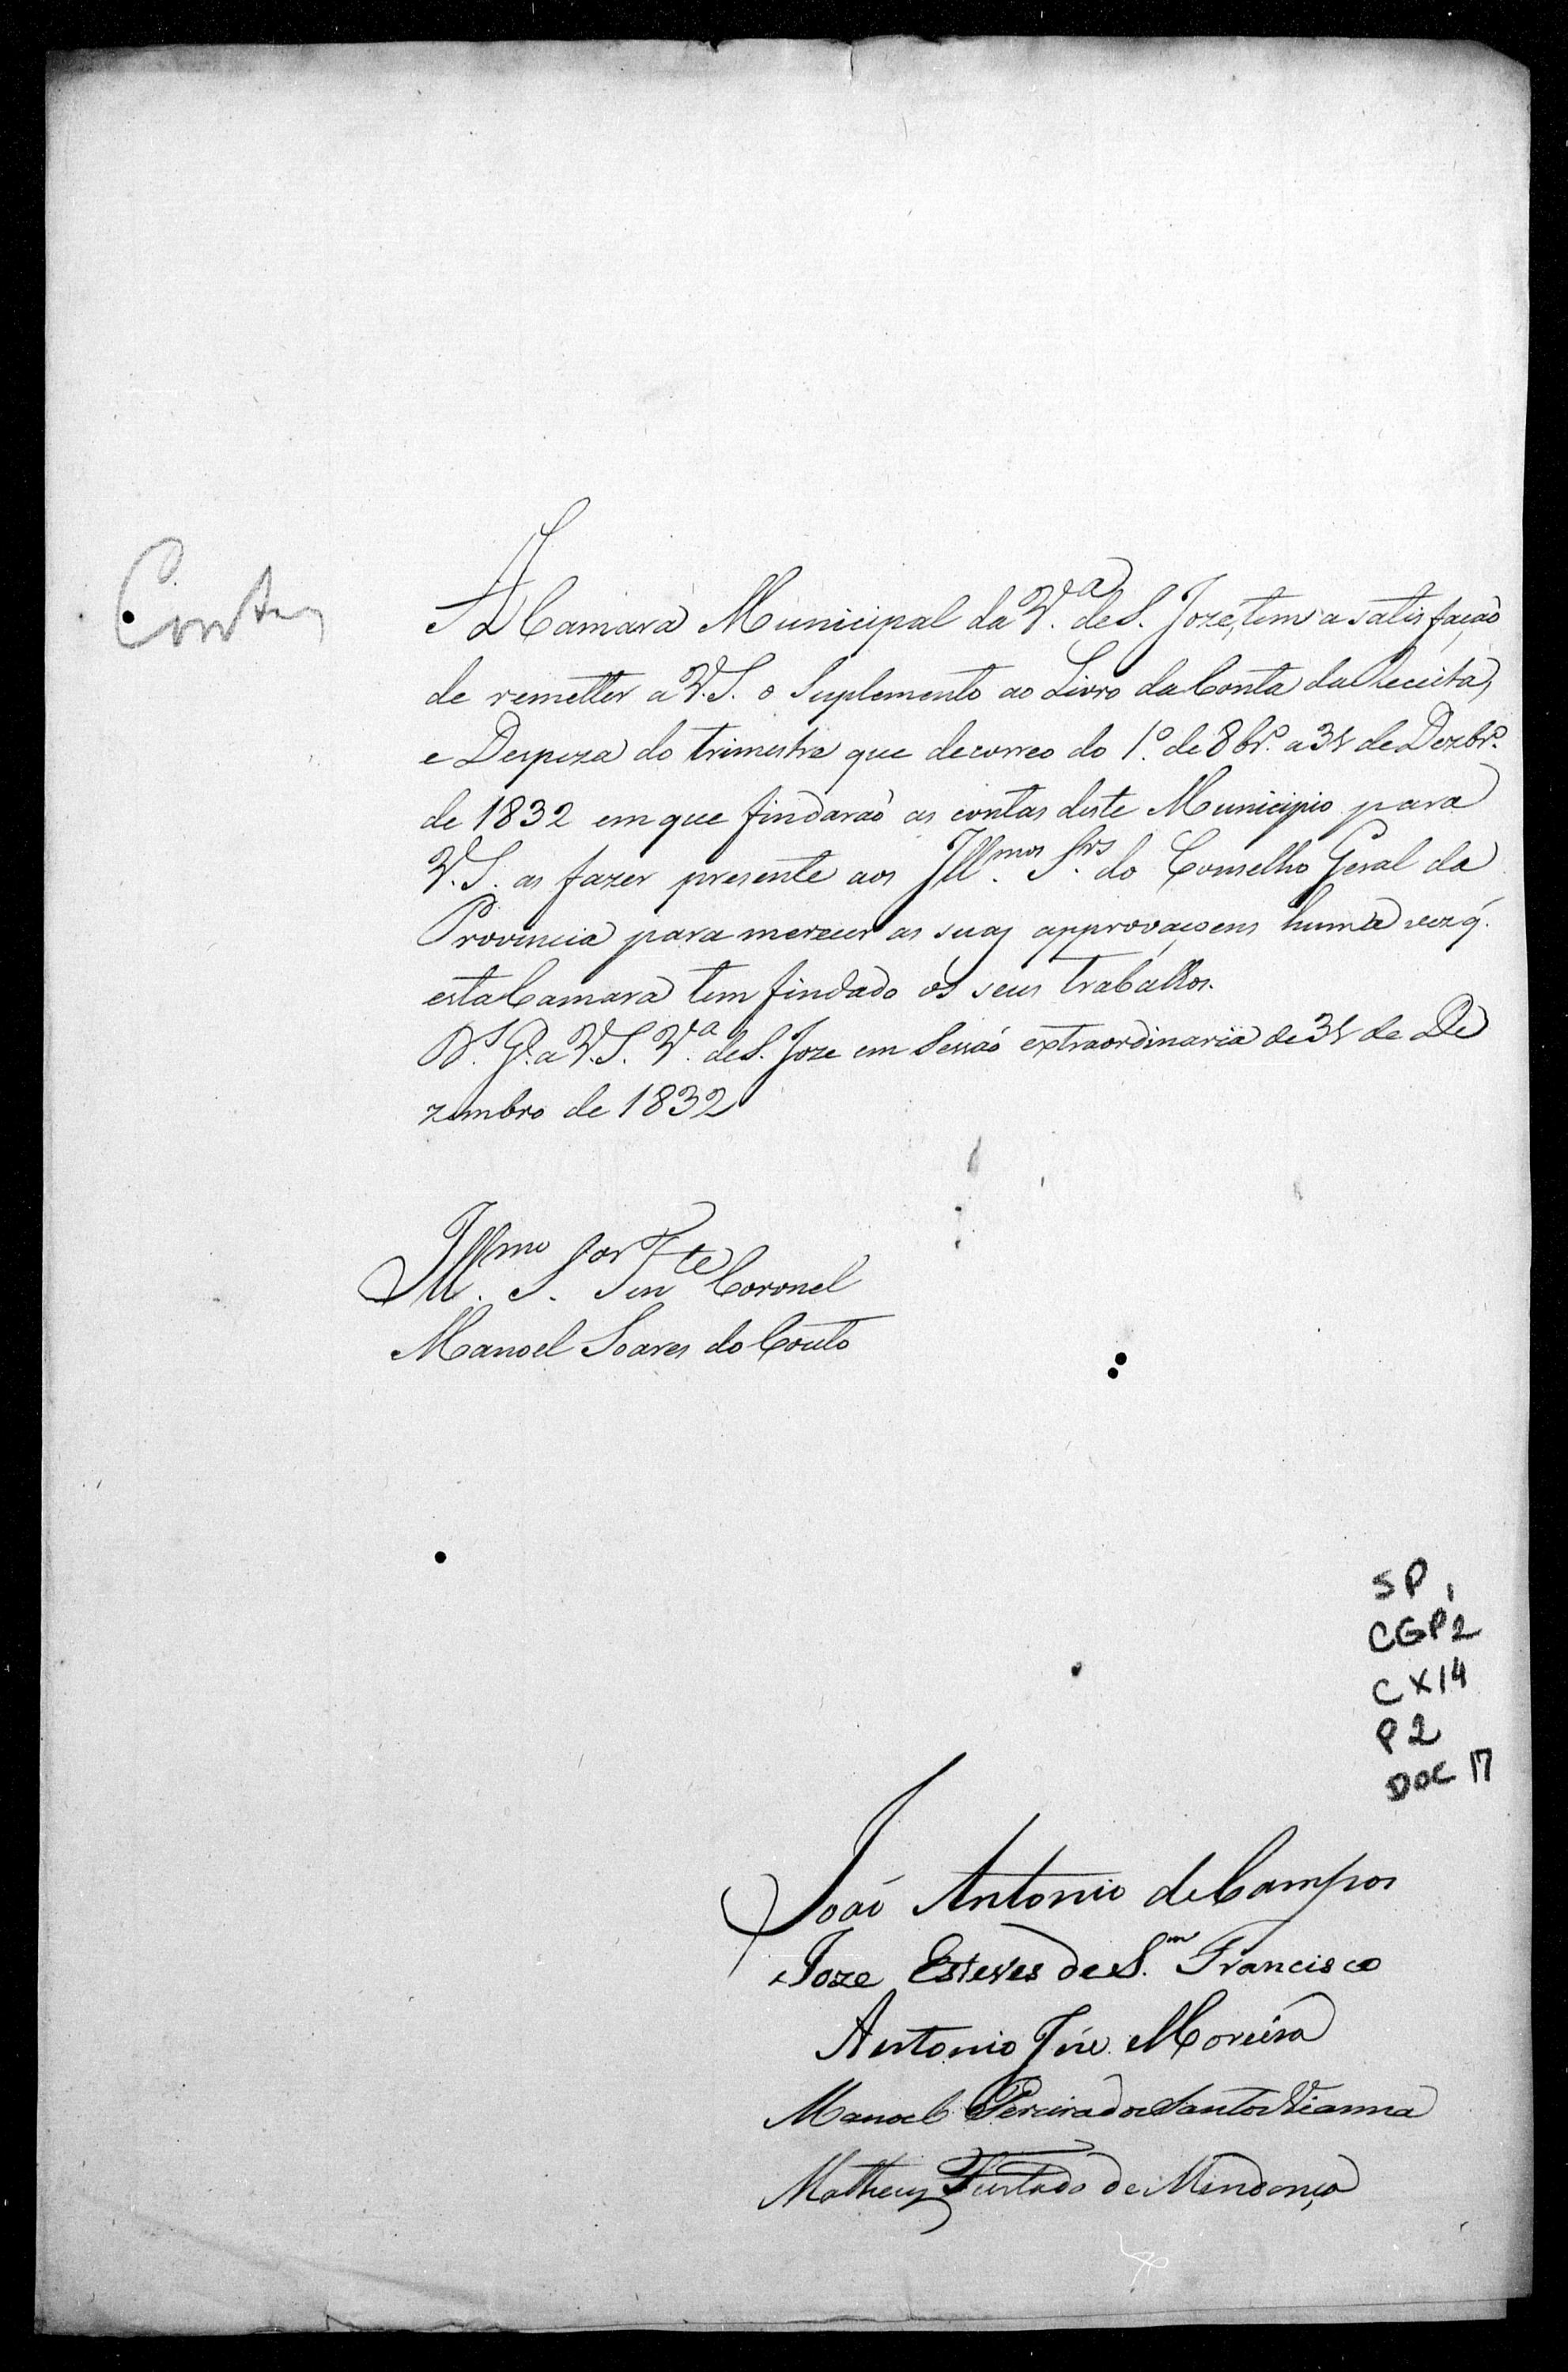 Contas
A Camara Municipal da V.ª de S. Joze, tem a satisfação
de remetter a V.S. o Suplemento ao Livro da Conta da Receita,
e Despeza do trimestre que decorreo do 1.º de 8br.º a 31 de Dezbr.º
de 1832 em que findaraõ as contas deste Municipio para
V.S. as fazer presente aos Illmos. Srs. do Conselho Geral da
Provincia para merecer as suas approvaçoens huma vez q.
esta Camara tem findado os seus trabalhos.
D.s G.e a V.S. V.ª de S. Joze em Sessaó extraordinaria de 31 de De
zembro de 1832
Illmo. Sor. Tente Coronel
Manoel Soares do Couto
SP 1
CGP2
CX14
P2
DOC 17
Joaó Antonio de Campos
Joze Esteves de S.m Francisco
Antonio Jose Moreira
Manoel Pereira dos Santos Vianna
Matheus Furtado de Mendonça